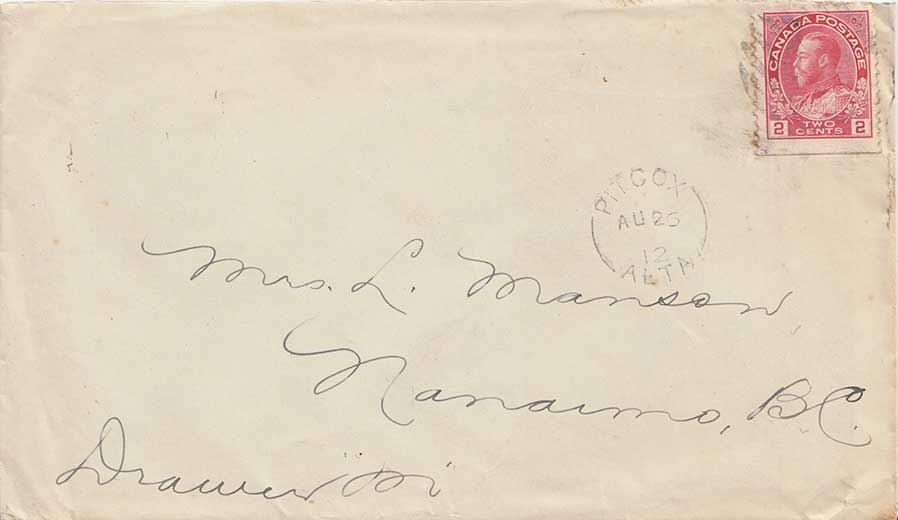 CANADA POSTAGE
2 TWO CENTS 2
PITCOX
AU 25
12
ALTA
Mrs. L. Manson,
Nanaimo, B.C.
Drawer